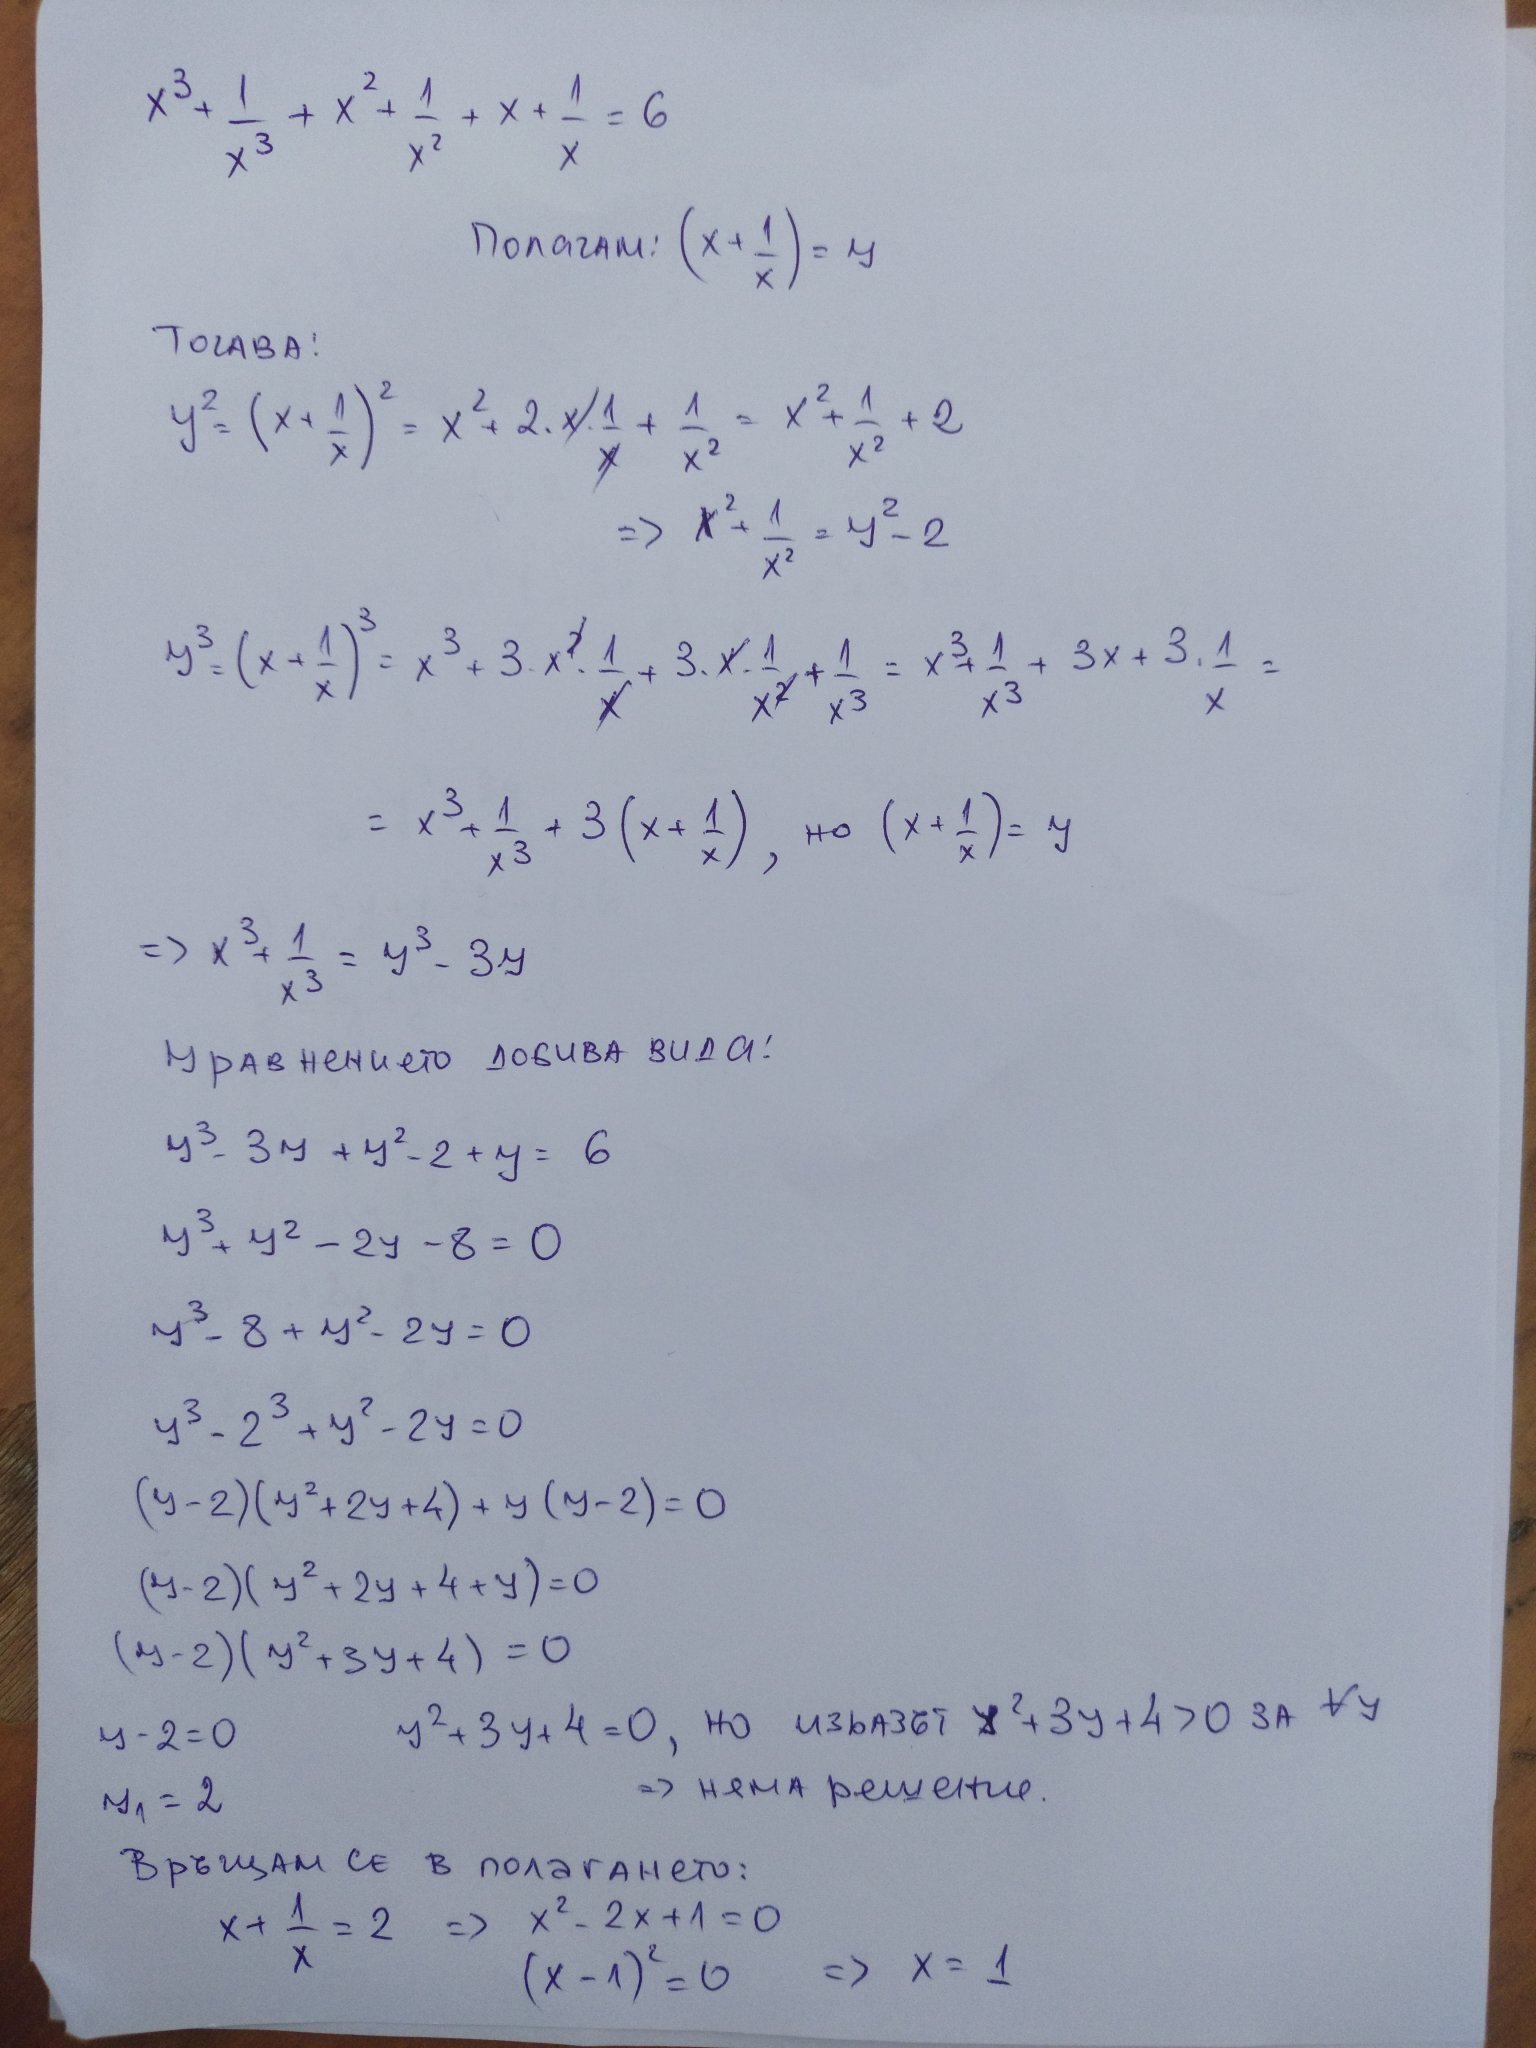 x³ + 1/x³ + x² + 1/x² + x + 1/x = 6
Полагам: (x + 1/x) = y
Тогава:
y² = (x + 1/x)² = x² + 2.x.1/x + 1/x² = x² + 1/x² + 2
=> x² + 1/x² = y² - 2
y³ = (x + 1/x)³ = x³ + 3.x².1/x + 3.x.1/x² + 1/x³ = x³ + 1/x³ + 3x + 3.1/x =
= x³ + 1/x³ + 3(x + 1/x), но (x + 1/x) = y
=> x³ + 1/x³ = y³ - 3y
Уравнението добива вида:
y³ - 3y + y² - 2 + y = 6
y³ + y² - 2y - 8 = 0
y³ - 8 + y² - 2y = 0
y³ - 2³ + y² - 2y = 0
(y-2)(y² + 2y + 4) + y(y-2) = 0
(y-2)(y² + 2y + 4 + y) = 0
(y-2)(y² + 3y + 4) = 0
y - 2 = 0 y² + 3y + 4 = 0, но изразът y² + 3y + 4 > 0 за ∀y
y₁ = 2 => няма решение.
Връщам се в полагането:
x + 1/x = 2 => x² - 2x + 1 = 0
(x - 1)² = 0 => x = 1